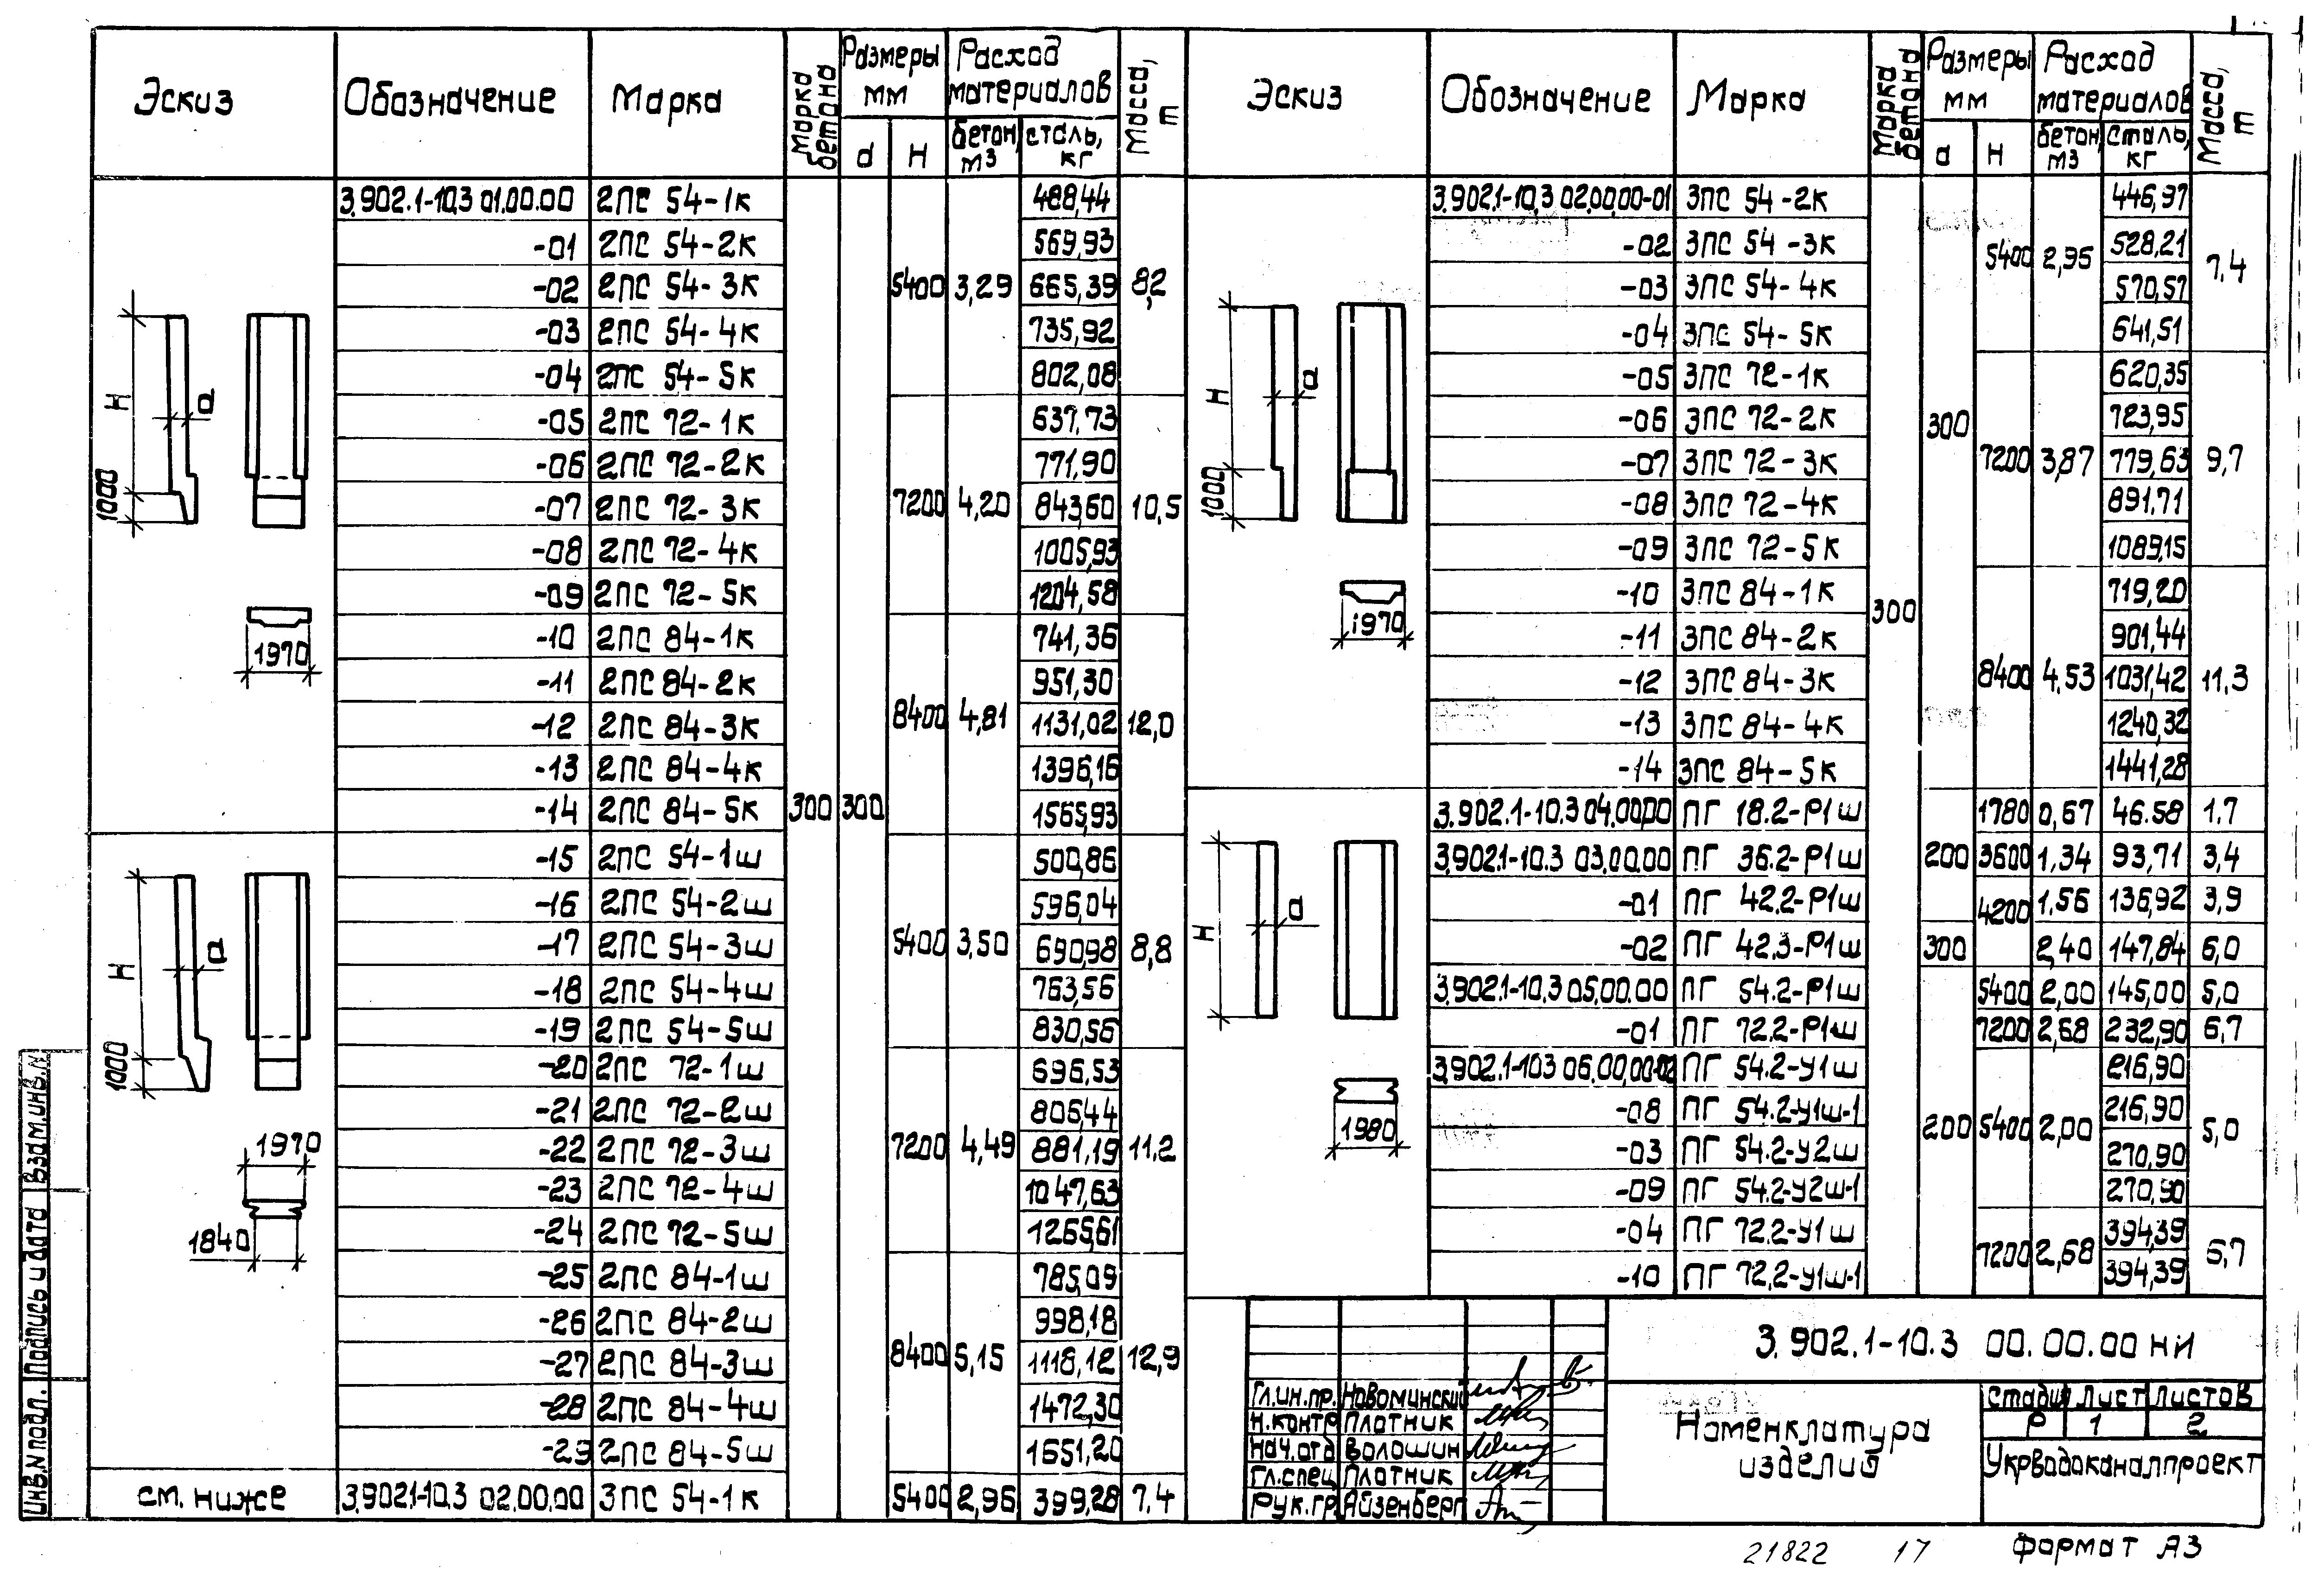 Эскиз Обозначение Марка Марка бетона Размеры мм Расход материалов Масса, т
d H бетон, м3 сталь, кг
3.902.1-10.3 01.00.00 2ПС 54-1к 488,44
-01 2ПС 54-2к 569,93
-02 2ПС 54-3к 5400 3,29 665,39 8,2
-03 2ПС 54-4к 735,92
-04 2ПС 54-5к 802,08
-05 2ПС 72-1к 637,73
-06 2ПС 72-2к 771,90
-07 2ПС 72-3к 7200 4,20 843,60 10,5
-08 2ПС 72-4к 1005,93
-09 2ПС 72-5к 1204,58
-10 2ПС 84-1к 741,36
-11 2ПС 84-2к 951,30
-12 2ПС 84-3к 8400 4,81 1131,02 12,0
-13 2ПС 84-4к 1396,16
-14 2ПС 84-5к 300 300 1565,93
H d 1000
1970
-15 2ПС 54-1ш 500,86
-16 2ПС 54-2ш 596,04
-17 2ПС 54-3ш 5400 3,50 690,98 8,8
-18 2ПС 54-4ш 763,56
-19 2ПС 54-5ш 830,56
-20 2ПС 72-1ш 696,53
-21 2ПС 72-2ш 806,44
-22 2ПС 72-3ш 7200 4,49 881,19 11,2
-23 2ПС 72-4ш 1047,63
-24 2ПС 72-5ш 1265,61
-25 2ПС 84-1ш 785,09
-26 2ПС 84-2ш 998,18
-27 2ПС 84-3ш 8400 5,15 1118,12 12,9
-28 2ПС 84-4ш 1472,30
-29 2ПС 84-5ш 1651,20
H d 1000
1970
1840
см. ниже 3.902.1-10.3 02.00.00 3ПС 54-1к 5400 2,96 399,28 7,4
Эскиз Обозначение Марка Марка бетона Размеры мм Расход материалов Масса, т
d H бетон, м3 сталь, кг
3.902.1-10.3 02.00.00-01 3ПС 54-2к 446,97
-02 3ПС 54-3к 5400 2,95 528,21 7,4
-03 3ПС 54-4к 570,57
-04 3ПС 54-5к 641,51
-05 3ПС 72-1к 620,35
-06 3ПС 72-2к 300 723,95
-07 3ПС 72-3к 7200 3,87 779,63 9,7
-08 3ПС 72-4к 891,71
-09 3ПС 72-5к 1089,15
-10 3ПС 84-1к 300 719,20
-11 3ПС 84-2к 901,44
-12 3ПС 84-3к 8400 4,53 1031,42 11,3
-13 3ПС 84-4к 1240,32
-14 3ПС 84-5к 1441,28
H d 1000
1970
3.902.1-10.3 04.00.00 ПГ 18.2-Р1ш 1780 0,67 46.58 1.7
3.902.1-10.3 03.00.00 ПГ 36.2-Р1ш 200 3600 1,34 93,71 3,4
-01 ПГ 42.2-Р1ш 4200 1,56 136,92 3,9
-02 ПГ 42.3-Р1ш 300 2,40 147,84 6,0
3.902.1-10.3 05.00.00 ПГ 54.2-Р1ш 5400 2,00 145,00 5,0
-01 ПГ 72.2-Р1ш 7200 2,68 232,90 6,7
3.902.1-10.3 06.00.00-02 ПГ 54.2-У1ш 216,90
-08 ПГ 54.2-У1ш-1 200 5400 2,00 216,90 5,0
-03 ПГ 54.2-У2ш 270,90
-09 ПГ 54.2-У2ш-1 270,90
-04 ПГ 72.2-У1ш 7200 2,68 394,39 6,7
-10 ПГ 72.2-У1ш-1 394,39
H d
1980
3.902.1-10.3 00.00.00 НИ
Гл.ин.пр. Новоминский
Н.контр Плотник
Нач.отд Волошин
Гл.спец Плотник
Рук.гр. Айзенберг
Номенклатура
изделий
Стадия Лист Листов
Р 1 2
Укрводоканалпроект
Инв.N подл. Подпись и дата Взам.инв.N
21822 17 Формат А3